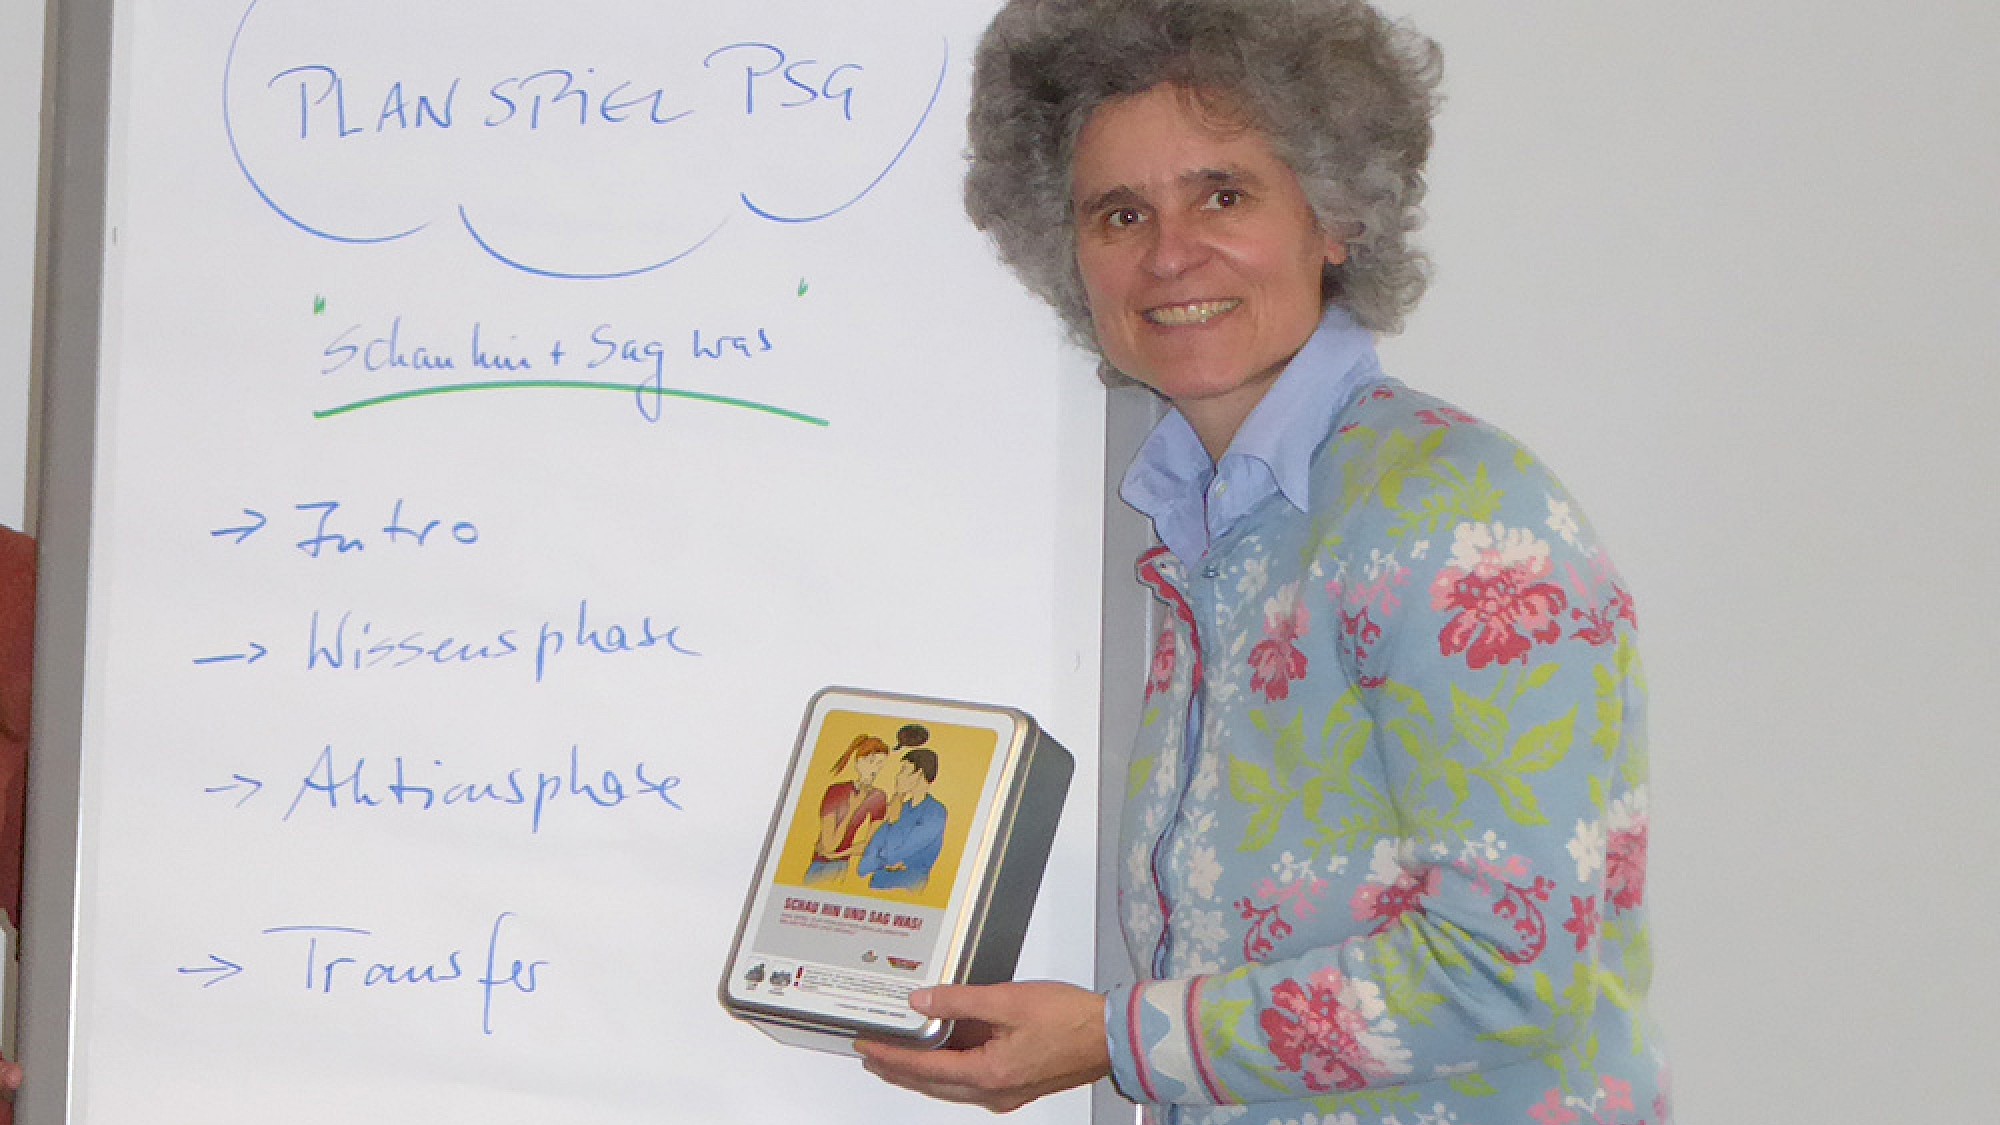 PLANSPIEL PSG
"Schau hin + Sag was"
→ Intro
→ Wissensphase
→ Aktionsphase
→ Transfer
SCHAU HIN UND SAG WAS!